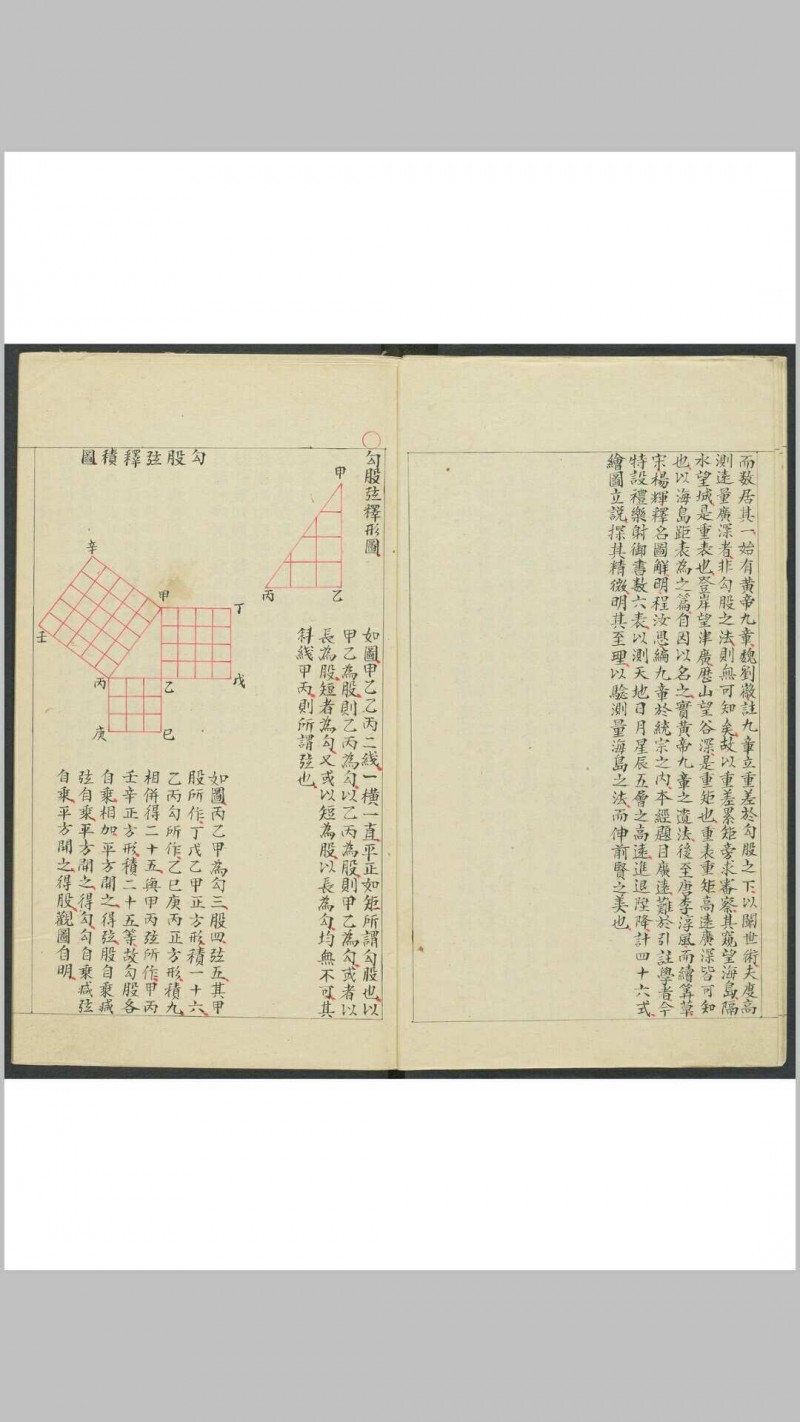 而数居其一始有黃帝九章魏劉徽註九章立重差於勾股之下以闡世術夫度高
測遠量廣深者非勾股之法則無可知矣故以重差累矩旁求審察其窺望海島隔
水望城是重表也登岸望津廣歷山望谷深是重矩也重表重矩高遠廣深皆可知
也以海島距表為之篇自因以名之實黃帝九章之遺法後至唐李淳風而續筭草
宋楊輝釋名圖解明程汝思編九章於統宗之内本經題目廣遠難於引註學者今
特設禮樂射御書数六表以測天地日月星辰五層之高遠進退陞降計四十六式
繪圖立説探其精微明其至理以驗測量海島之法而伸前賢之美也
勾股弦釋形圖
甲
丙
乙
如圖甲乙乙丙二线一橫一直平正如矩所謂勾股也以
甲乙為股則乙丙為勾以乙丙為股則甲乙為勾或者以
長為股短者為勾又或以短為股以長為勾均無不可其
斜线甲丙則所謂弦也
勾股弦釋積圖
辛
甲
丁
壬
丙
乙
戊
庚
巳
如圖丙乙甲為勾三股四弦五其甲
股所作丁戊乙甲正方形積一十六
乙丙勾所作乙巳庚丙正方形積九
相併得二十五與甲丙弦所作甲丙
壬辛正方形積二十五等故勾股各
自乘相加平方開之得弦股自乘减
弦自乘平方開之得勾勾自乘减弦
自乘平方開之得股觀圖自明